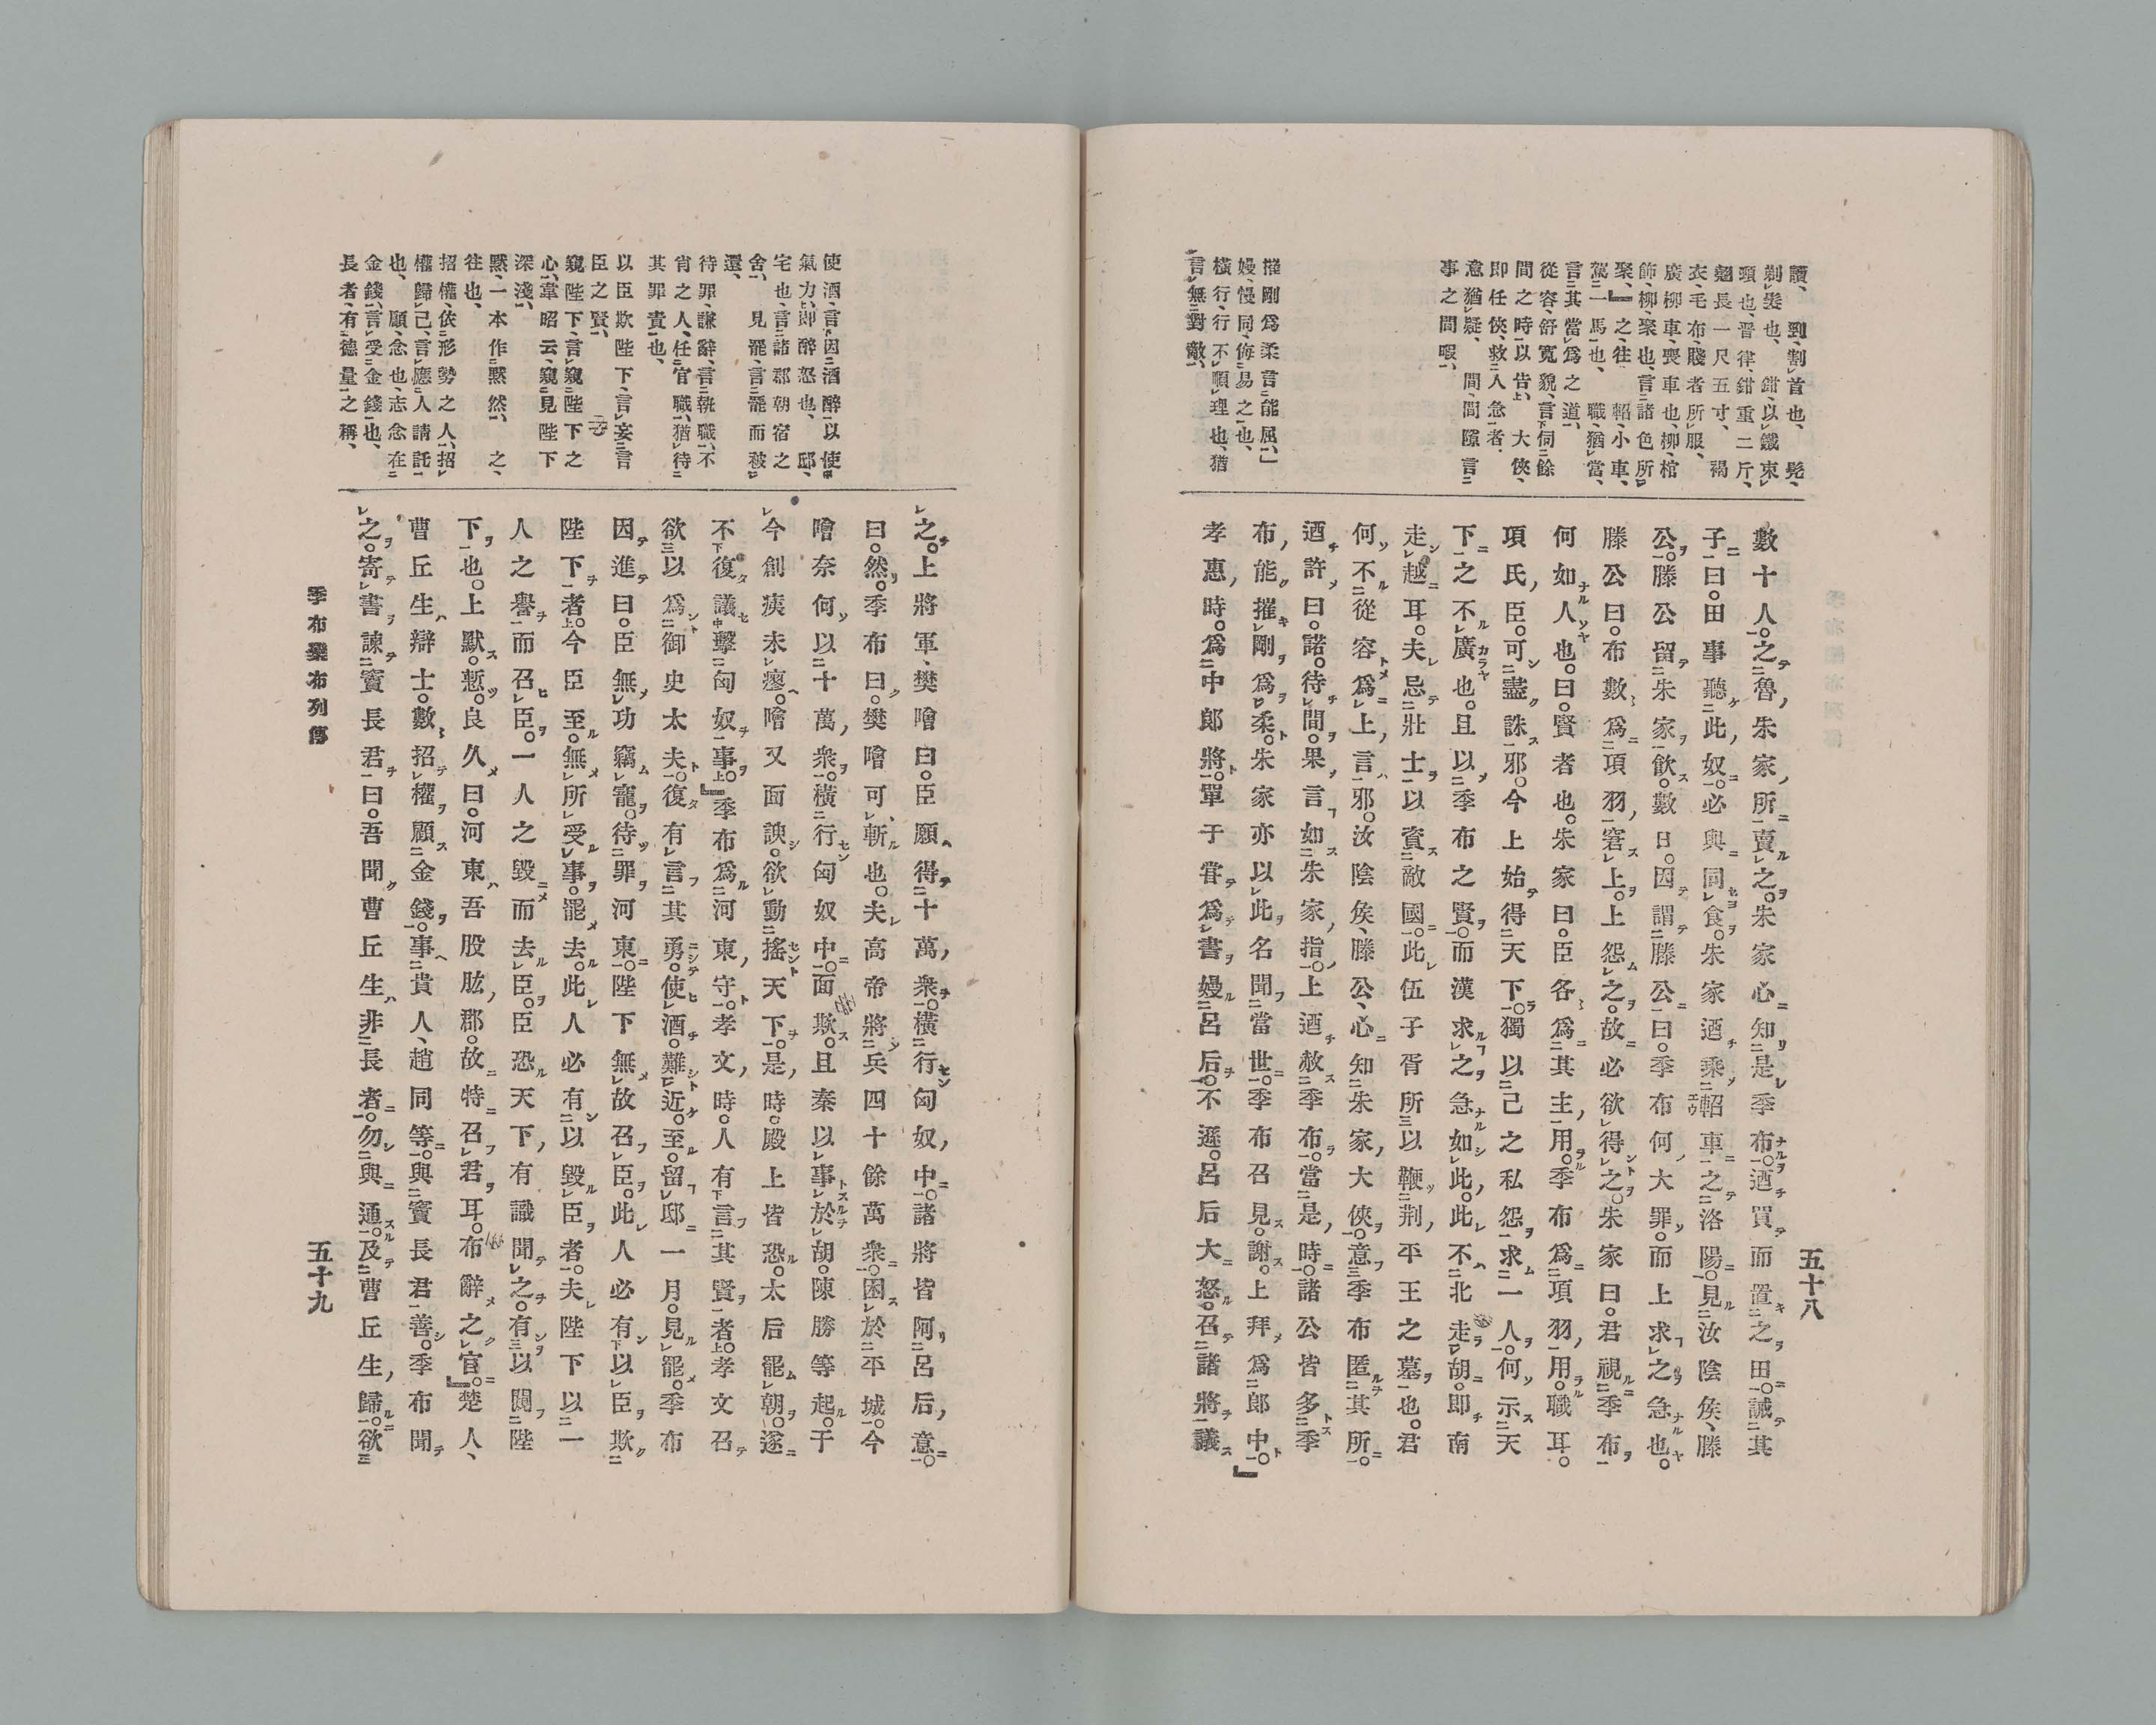 五十八
贖、　剄、割首也、　髡、
剃髮也、　鉗、以鐵束
頸也、晋律、鉗重二斤、
翹長一尺五寸、　褐
衣、毛布、賤者所服、
廣柳車、喪車也、柳、棺
飾、柳、聚也、言諸色所
聚、』之、往　軺、小車、
駕一馬也、　職、猶當、
言其當爲之道、
從容、舒寬貌、言伺餘
間之時以告、　大俠、
即任俠、救人急者、
意、猶疑、　間、間隙、言
事之間暇、
摧剛爲柔、言能屈、』
嫚、慢同、侮易之也、
橫行、行不順理也、猶
言無對敵、
數十人。之魯朱家所賣之。朱家心知是季布。迺買而置之田。誡其
子曰。田事聽此奴。必與同食。朱家迺乘軺車之洛陽。見汝陰矦、滕
公。滕公留朱家飲。數日。因謂滕公曰。季布何大罪。而上求之急也。
滕公曰。布數爲項羽窘上。上怨之。故必欲得之。朱家曰。君視季布
何如人也。曰。賢者也。朱家曰。臣各爲其主用。季布爲項羽用。職耳。
項氏臣。可盡誅邪。今上始得天下。獨以己之私怨求一人。何示天
下之不廣也。且以季布之賢。而漢求之急如此。此不北走胡。即南
走越耳。夫忌壯士以資敵國。此伍子胥所以鞭荆平王之墓也。君
何不從容爲上言邪。汝陰矦、滕公、心知朱家大俠。意季布匿其所。
迺許曰。諾。待間。果言如朱家指。上迺赦季布。當是時。諸公皆多季
布能摧剛爲柔。朱家亦以此名聞當世。季布召見。謝。上拜爲郎中。』
孝惠時。爲中郎將。單于甞爲書嫚呂后。不遜。呂后大怒。召諸將議
使酒、言因酒醉以使
氣力、即醉怒也、　邸、
宅也、言諸郡朝宿之
舍、　見罷、言罷而被
還、
待罪、謙辭、言就職、不
肖之人、任官職、猶待
其罪責也、
以臣欺陛下、言妄言
臣之賢、
窺陛下、言窺陛下之
心、韋昭云、窺見陛下
深淺、
默、一本作默然、　之、
往也、
招權、依形勢之人、招
權歸己、言應人請託
也、　顧、念也、志念在
金錢、言受金錢也、
長者、有德量之稱、
之。上將軍、樊噲曰。臣願得十萬衆。橫行匈奴中。諸將皆阿呂后意。
曰。然。季布曰。樊噲可斬也。夫高帝將兵四十餘萬衆。困於平城。今
噲奈何以十萬衆。橫行匈奴中。面欺。且秦以事於胡。陳勝等起。于
今創痍未瘳。噲又面諛。欲動搖天下。是時。殿上皆恐。太后罷朝。遂
不復議擊匈奴事。』季布爲河東守。孝文時。人有言其賢者。孝文召
欲以爲御史太夫。復有言其勇。使酒。難近。至。留邸一月。見罷。季布
因進曰。臣無功竊寵。待罪河東。陛下無故召臣。此人必有以臣欺
陛下者。今臣至。無所受事。罷去。此人必有以毀臣者。夫陛下以一
人之譽而召臣。一人之毀而去臣。臣恐天下有識聞之。有以闚陛
下也。上默。慙。良久曰。河東吾股肱郡。故特召君耳。布辭之官。』楚人、
曹丘生辯士。數招權顧金錢。事貴人、趙同等。與竇長君善。季布聞
之。寄書諫竇長君曰。吾聞曹丘生非長者。勿與通。及曹丘生歸。欲
季布欒布列傳
五十九